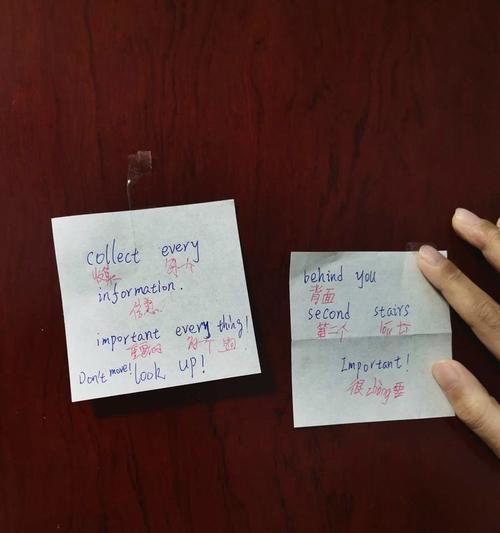 collect every
收集 每一个
information.
信息
important every thing!
重要的 每个
Don't move! look up!
behind you
背面
second stairs
第二个
Important!
很zhòng要